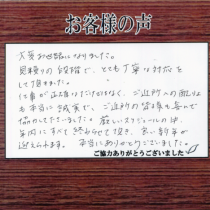 お客様の声
大変お世話になりました。
見積りの段階で、とても丁寧な対応を
して頂きました。
仕事が正確なだけでなく、ご近所への配慮
も本当に誠実で、ご近所の皆様も喜んで
協力してくださいました。厳しいスケジュールの中、
年内にすべて終わらせて頂き、良い新年が
迎えられます。本当にありがとうございました。
ご協力ありがとうございました